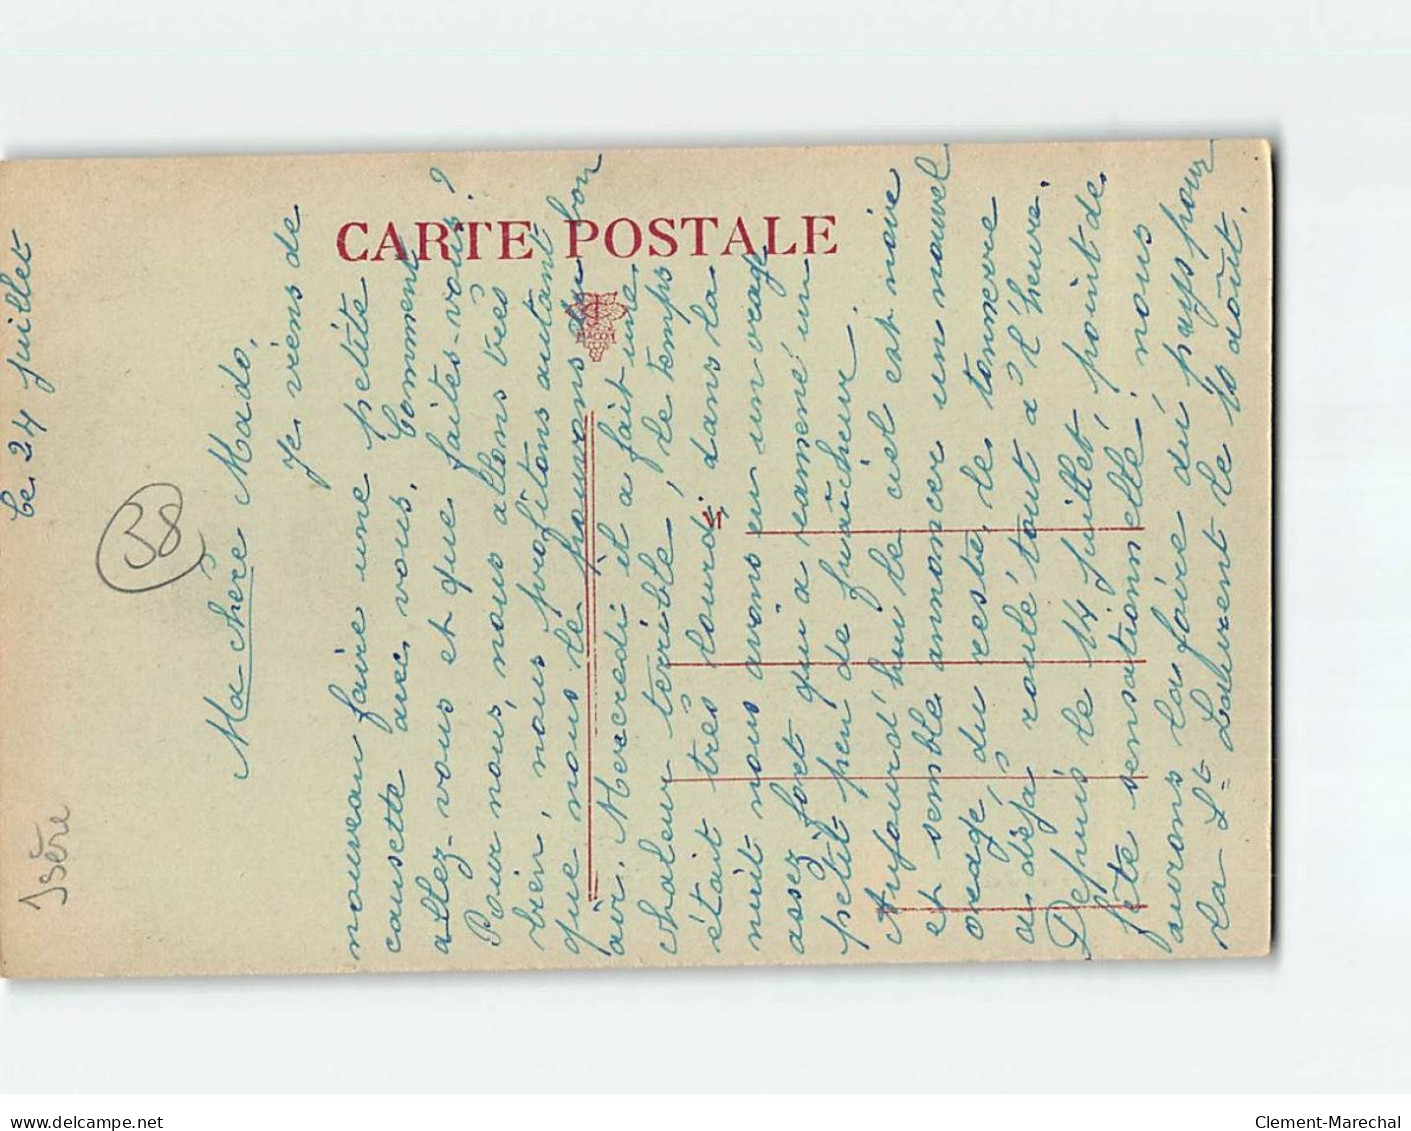 Ce 24 Juillet
Ma chère Mado,
Je viens de
nouveau faire une petite
causette avec vous. Comment
allez-vous et que faites-vous?
Pour nous, nous allons très
bien, nous profitons autant
que nous le pouvons du bon
air. Mercredi il a fait une
chaleur terrible, le temps
était très lourd, dans la
nuit nous avons eu un orage
assez fort qui a ramené un
petit peu de fraîcheur.
Aujourd'hui le ciel est noir
et semble annoncer un nouvel
orage, du reste, le tonnerre
a déjà roulé tout à l'heure.
Depuis le 14 juillet, point de
fête sensationnelle, nous
aurons la foire du pays pour
la St Laurent le 10 août.
CARTE POSTALE
MACON
38
Isère
www.delcampe.net
Clement-Marechal